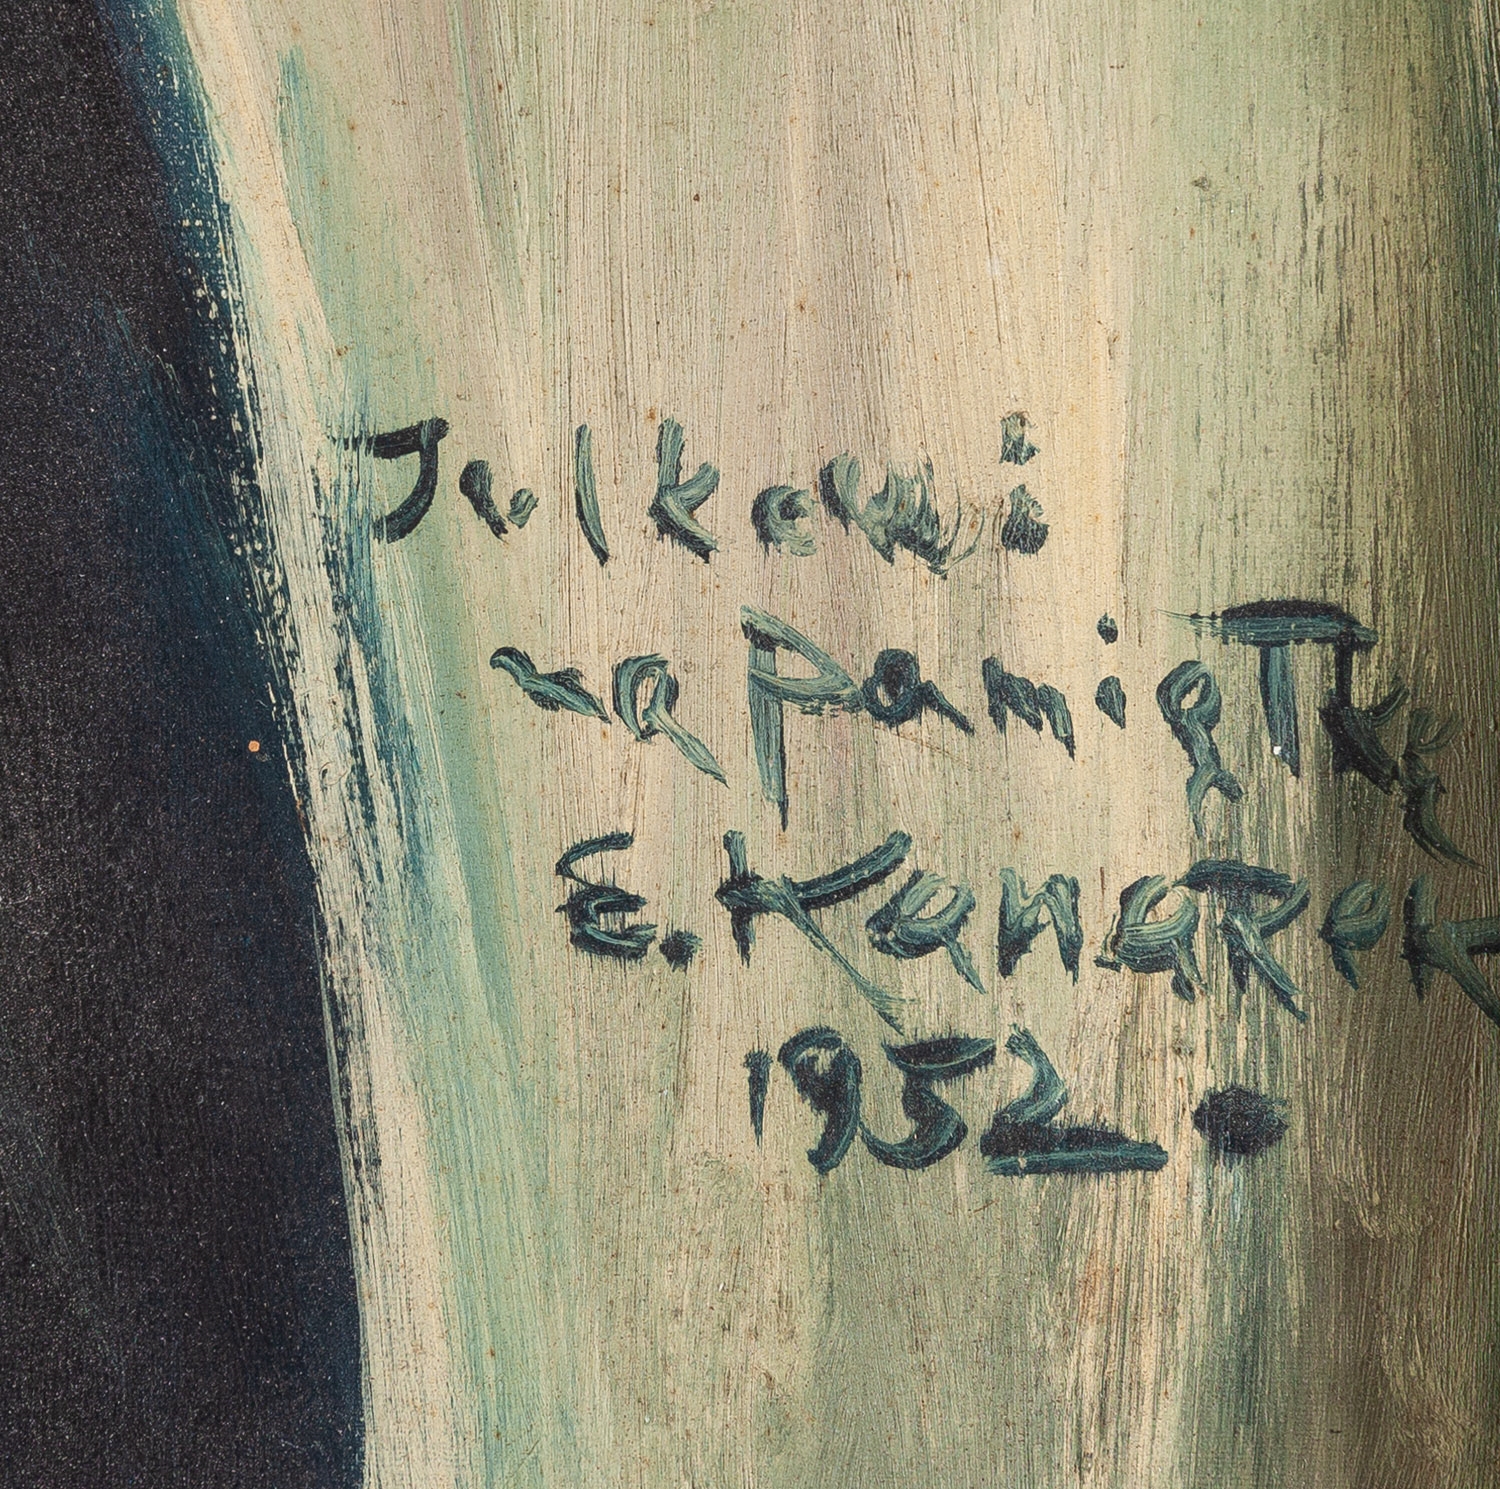 Julkowi
na pamiątkę
E. Kanarek
1952.